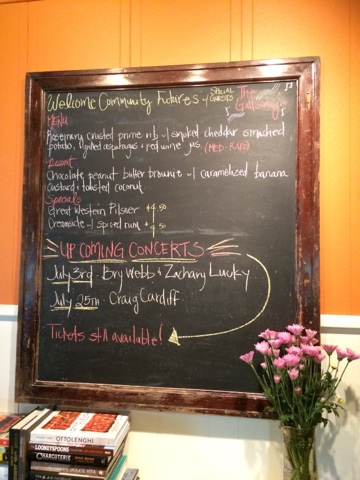 Welcome Community Futures & SPECIAL GUESTS The
MENU
Rosemary crusted prime rib w/ smoked cheddar smashed
potato, grilled asparagus & red wine jus (MED-RARE)
Dessert
Chocolate peanut-butter brownie w/ caramelized banana
custard & toasted coconut
Specials
Great Western Pilsner $4.50
Creemore w/ spiced rum $ .50
UPCOMING CONCERTS
July 3rd - Bry Webb & Zachary Lucky
July 25th - Craig Cardiff
Tickets still available!
OTTOLENGHI
LOONEYSPOONS
CHARCUTERIE